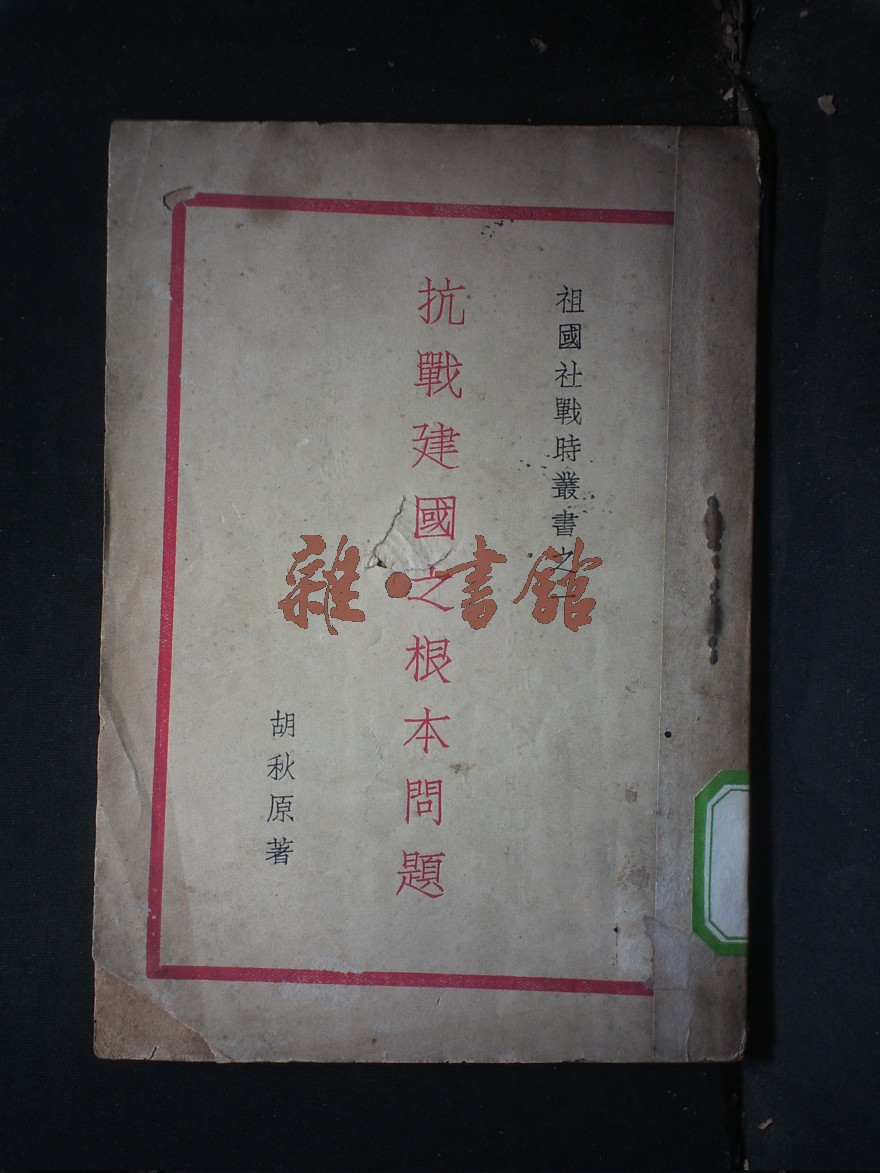 祖國社戰時叢書之一
抗戰建國之根本問題
胡秋原著
雜·書館